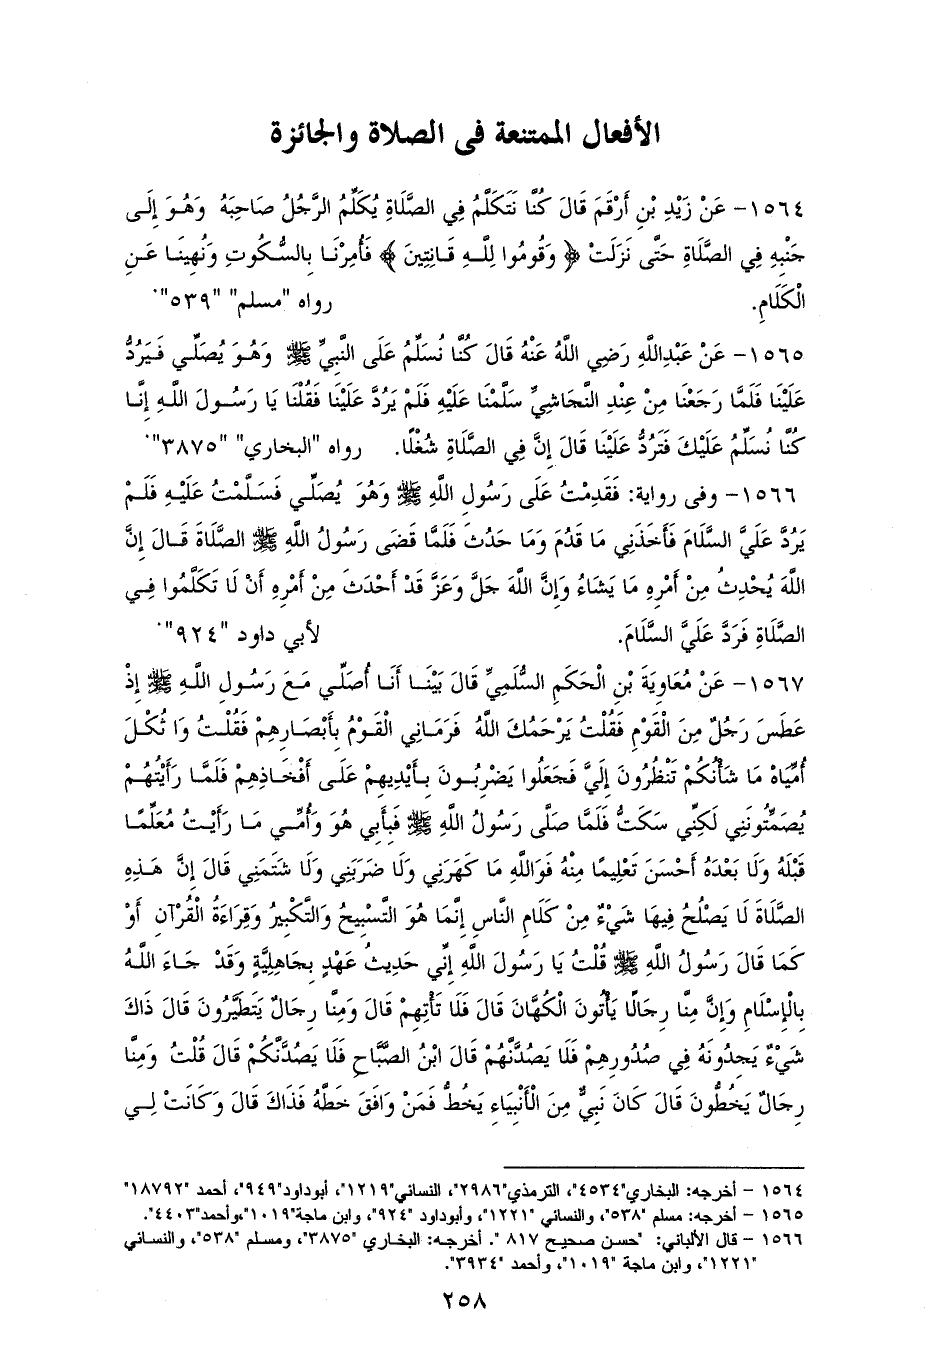 الأفعال الممتنعة فى الصلاة والجائزة
١٥٦٤- عَنْ زَيْدِ بْنِ أَرْقَمَ قَالَ كُنَّا نَتَكَلَّمُ فِي الصَّلَاةِ يُكَلِّمُ الرَّجُلُ صَاحِبَهُ وَهُوَ إِلَى
جَنْبِهِ فِي الصَّلَاةِ حَتَّى نَزَلَتْ ﴿ وَقُومُوا لِلَّهِ قَانِتِينَ ﴾ فَأُمِرْنَا بِالسُّكُوتِ وَنُهِينَا عَنِ
الْكَلَامِ. رواه "مسلم" "٥٣٩".
١٥٦٥- عَنْ عَبْدِاللَّهِ رَضِي اللَّهُ عَنْهُ قَالَ كُنَّا نُسَلِّمُ عَلَى النَّبِيِّ ﷺ وَهُوَ يُصَلِّي فَيَرُدُّ
عَلَيْنَا فَلَمَّا رَجَعْنَا مِنْ عِنْدِ النَّجَاشِيِّ سَلَّمْنَا عَلَيْهِ فَلَمْ يَرُدَّ عَلَيْنَا فَقُلْنَا يَا رَسُولَ اللَّهِ إِنَّا
كُنَّا نُسَلِّمُ عَلَيْكَ فَتَرُدُّ عَلَيْنَا قَالَ إِنَّ فِي الصَّلَاةِ شُغْلًا. رواه "البخاري" "٣٨٧٥".
١٥٦٦- وفى رواية: فَقَدِمْتُ عَلَى رَسُولِ اللَّهِ ﷺ وَهُوَ يُصَلِّي فَسَلَّمْتُ عَلَيْهِ فَلَمْ
يَرُدَّ عَلَيَّ السَّلَامَ فَأَخَذَنِي مَا قَدُمَ وَمَا حَدُثَ فَلَمَّا قَضَى رَسُولُ اللَّهِ ﷺ الصَّلَاةَ قَالَ إِنَّ
اللَّهَ يُحْدِثُ مِنْ أَمْرِهِ مَا يَشَاءُ وَإِنَّ اللَّهَ جَلَّ وَعَزَّ قَدْ أَحْدَثَ مِنْ أَمْرِهِ أَنْ لَا تَكَلَّمُوا فِي
الصَّلَاةِ فَرَدَّ عَلَيَّ السَّلَامَ. لأبي داود "٩٢٤".
١٥٦٧- عَنْ مُعَاوِيَةَ بْنِ الْحَكَمِ السُّلَمِيِّ قَالَ بَيْنَا أَنَا أُصَلِّي مَعَ رَسُولِ اللَّهِ ﷺ إِذْ
عَطَسَ رَجُلٌ مِنَ الْقَوْمِ فَقُلْتُ يَرْحَمُكَ اللَّهُ فَرَمَانِي الْقَوْمُ بِأَبْصَارِهِمْ فَقُلْتُ وَا ثُكْلَ
أُمِّيَاهْ مَا شَأْنُكُمْ تَنْظُرُونَ إِلَيَّ فَجَعَلُوا يَضْرِبُونَ بِأَيْدِيهِمْ عَلَى أَفْخَاذِهِمْ فَلَمَّا رَأَيْتُهُمْ
يُصَمِّتُونَنِي لَكِنِّي سَكَتُّ فَلَمَّا صَلَّى رَسُولُ اللَّهِ ﷺ فَبِأَبِي هُوَ وَأُمِّي مَا رَأَيْتُ مُعَلِّمًا
قَبْلَهُ وَلَا بَعْدَهُ أَحْسَنَ تَعْلِيمًا مِنْهُ فَوَاللَّهِ مَا كَهَرَنِي وَلَا ضَرَبَنِي وَلَا شَتَمَنِي قَالَ إِنَّ هَذِهِ
الصَّلَاةَ لَا يَصْلُحُ فِيهَا شَيْءٌ مِنْ كَلَامِ النَّاسِ إِنَّمَا هُوَ التَّسْبِيحُ وَالتَّكْبِيرُ وَقِرَاءَةُ الْقُرْآنِ أَوْ
كَمَا قَالَ رَسُولُ اللَّهِ ﷺ قُلْتُ يَا رَسُولَ اللَّهِ إِنِّي حَدِيثُ عَهْدٍ بِجَاهِلِيَّةٍ وَقَدْ جَاءَ اللَّهُ
بِالْإِسْلَامِ وَإِنَّ مِنَّا رِجَالًا يَأْتُونَ الْكُهَّانَ قَالَ فَلَا تَأْتِهِمْ قَالَ وَمِنَّا رِجَالٌ يَتَطَيَّرُونَ قَالَ ذَاكَ
شَيْءٌ يَجِدُونَهُ فِي صُدُورِهِمْ فَلَا يَصُدَّنَّهُمْ قَالَ ابْنُ الصَّبَّاحِ فَلَا يَصُدَّنَّكُمْ قَالَ قُلْتُ وَمِنَّا
رِجَالٌ يَخُطُّونَ قَالَ كَانَ نَبِيٌّ مِنَ الْأَنْبِيَاءِ يَخُطُّ فَمَنْ وَافَقَ خَطَّهُ فَذَاكَ قَالَ وَكَانَتْ لِي
١٥٦٤ - أخرجه: البخاري"٤٥٣٤"، الترمذي"٢٩٨٦"، النسائي"١٢١٩"، أبوداود"٩٤٩"، أحمد "١٨٧٩٢"
١٥٦٥ - أخرجه: مسلم "٥٣٨"، والنسائي "١٢٢١"، وأبوداود "٩٢٤"، وابن ماجة"١٠١٩"،وأحمد"٤٤٠٣".
١٥٦٦ - قال الألباني: "حسن صحيح ٨١٧ ". أخرجه: البخاري "٣٨٧٥"، ومسلم "٥٣٨"، والنسائي
"١٢٢١"، وابن ماجة "١٠١٩"، وأحمد "٣٩٣٤".
٢٥٨